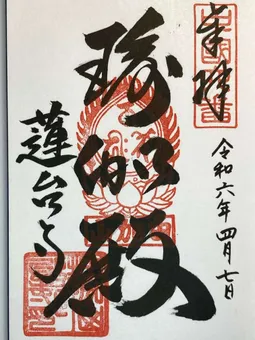 奉拝
令和六年四月七日
瑜伽殿
蓮台寺